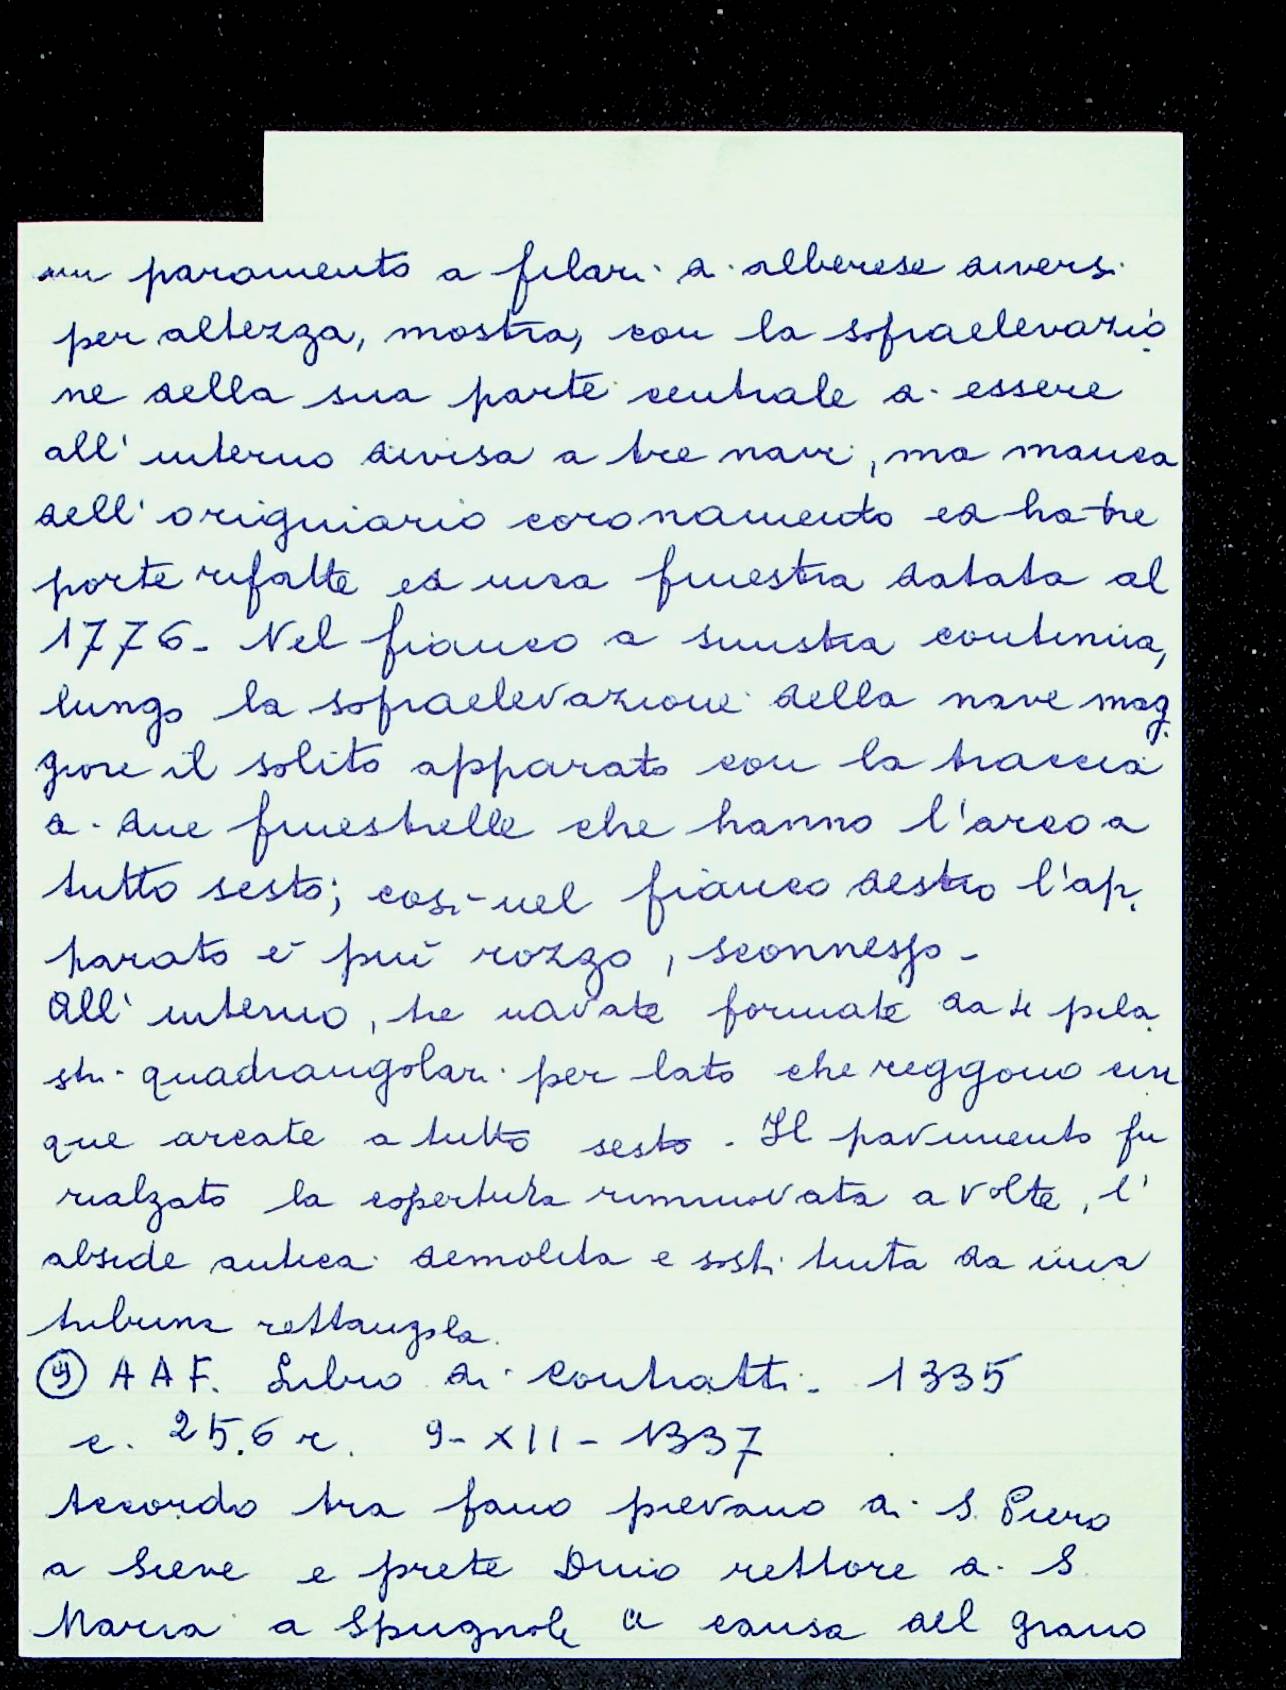 un paramento a filari di alberese diversi
per altezza, mostra, con la sopraelevazio
ne della sua parte centrale di essere
all'interno divisa a tre navi, ma manca
dell'originario coronamento ed ha tre
porte rifatte ed una finestra datata al
1776- Nel fianco a sinistra continua,
lungo la sopraelevazione della nave mag
giore il solito apparato con la traccia
di due finestrelle che hanno l'arco a
tutto sesto; così nel fianco destro l'ap
parato è più rozzo, sconnesso-
All'interno, tre navate formate da 4 pila
stri quadrangolari per lato che reggono cin
que arcate a tutto sesto. Il pavimento fu
rialzato la copertura rinnovata a volte, l'
abside antica demolita e sostituita da una
tribuna rettangola.
AAF. Libro di contratti. 1335
c. 25.6 r. 9-XII-1337
Accordo tra fano pievano di S. Piero
a Sieve e prete Duio rettore di S.
Maria a Spugnole a causa del grano